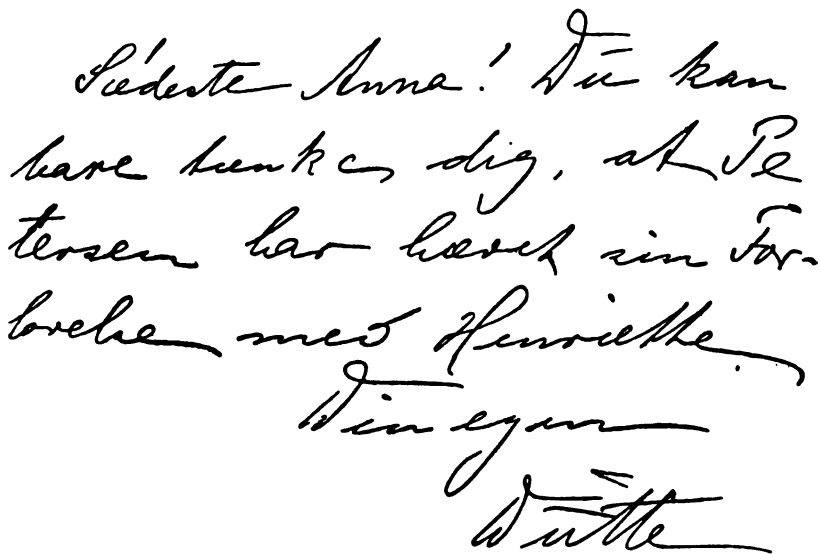 Sødeste Anna! Du kan
bare tænke dig, at Pe
tersen har hævet sin For-
lovelse med Henriette.
Din egen
Dütte